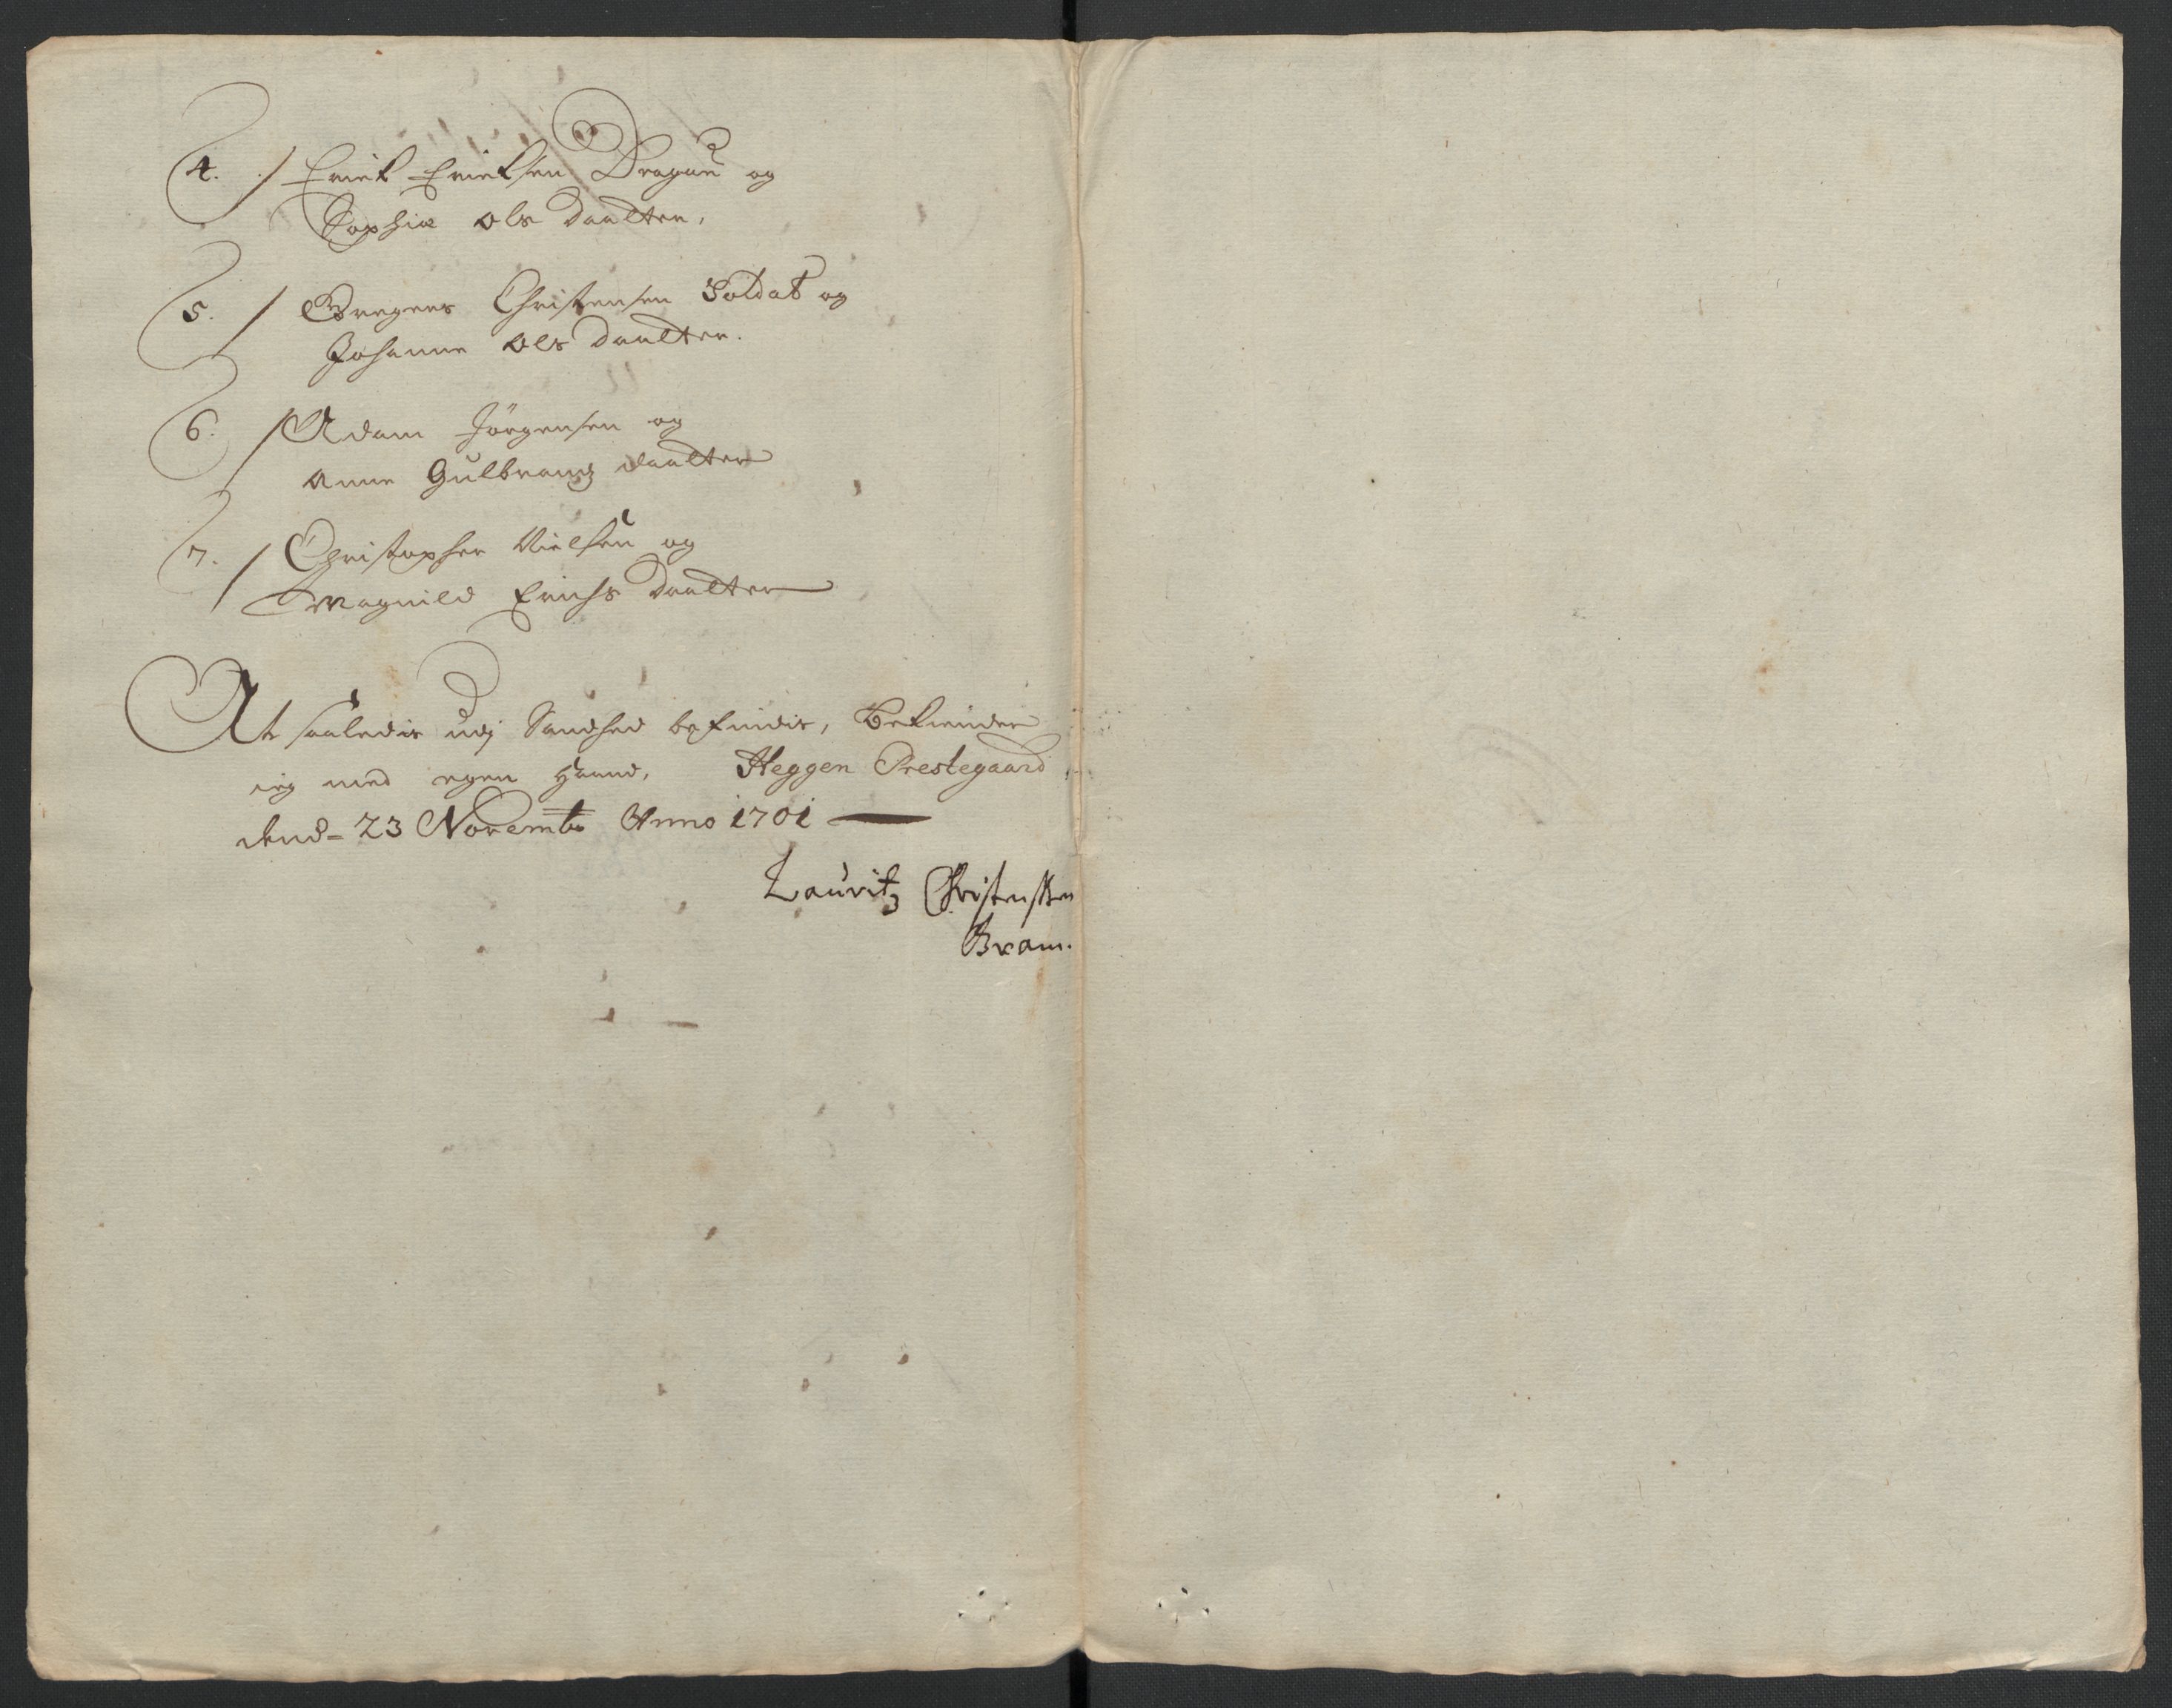 4. / Erick Ericksen Dragun og
Sophie Ols Daatter,
5. / Gregers Christensen Soldat og
Johanne Ols Daatter.
6. / Adam Jörgensen og
Anne Gulbrantz daatter
7. / Christopher Nielsen og
Magnild Erichs Daatter
At saaledis udj Sandhed befindis, Bekiender
ieg med egen Haand, Heggen Prestegaard
dend= 23 Novembr Anno 1701
Lauritz Christenssen
Bram.